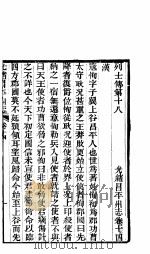 列士傳第十八 光緒昌平州志卷十四
漢
寇恂字子翼上谷昌平人也世為著姓恂初為郡功曹
太守耿況甚重之王莽敗更始立使使者徇郡國曰先
降者復爵位恂從耿況迎使者於界上況上印綬使者
納之一宿無還意恂勒兵入見使者就請之使者不與
曰天王使者功曹欲脅之邪恂曰非敢脅使君竊傷計
之不詳也今天下初定國信未宣使君建節銜命以臨
四方郡國莫不延頸傾耳望風歸命今始至上谷而先